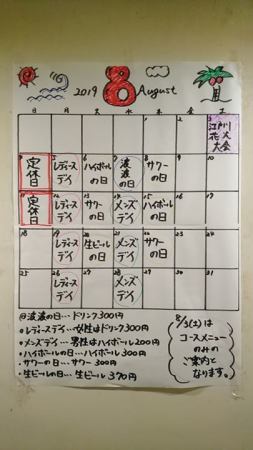 2019 8 August
日 月 火 水 木 金 土
1 2 3
江戸川花火大会
4 5 6 7 8 9 10
定休日 レディースデイ ハイボールの日 波波の日 サワーの日
11 12 13 14 15 16 17
定休日 レディースデイ サワーの日 メンズデイ ハイボールの日
18 19 20 21 22 23 24
レディースデイ 生ビールの日 メンズデイ サワーの日
25 26 27 28 29 30 31
レディースデイ メンズデイ
@波波の日…ドリンク300円
・レディースデイ…女性はドリンク300円
・メンズデイ…男性はハイボール200円
・ハイボールの日…ハイボール300円
・サワーの日…サワー300円
・生ビールの日…生ビール370円
8/3(土)は
コースメニュー
のみの
ご案内と
なります。